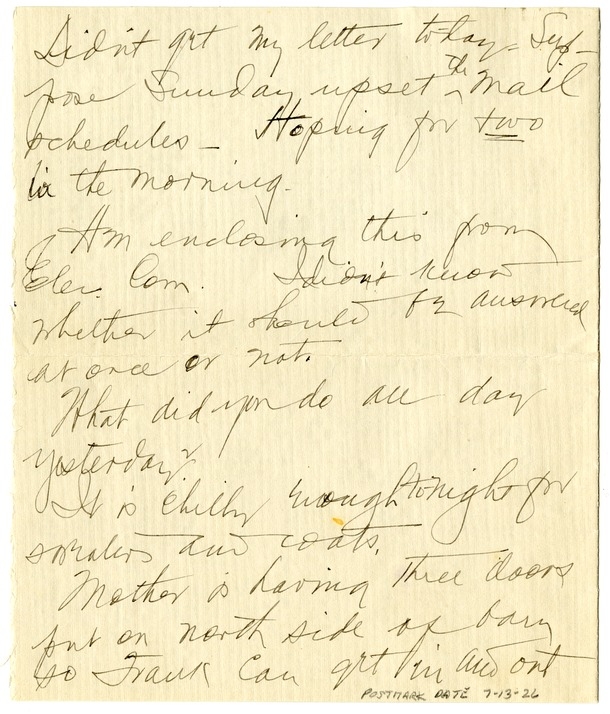 Didn't get my letter today - Sup-
pose Sunday upset the mail
schedules - Hoping for two
in the morning.
Am enclosing this from
Elec. Com. I didn't know
whether it should be answered
at once or not.
What did you do all day
yesterday?
It is chilly enough tonight for
sweaters and coats.
Mother is having three doors
put on north side of barn
so Frank can get in and out
POSTMARK DATE 7-13-26